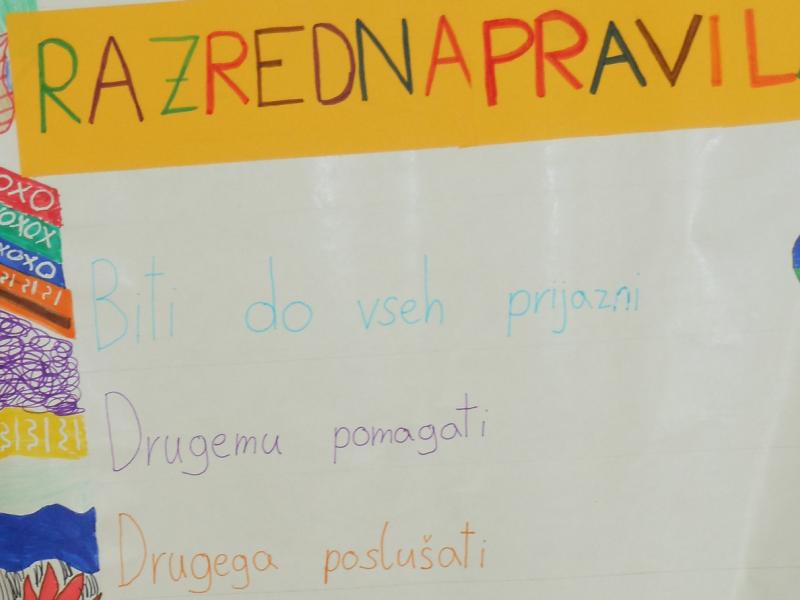 RAZREDNA PRAVIL
Biti do vseh prijazni
Drugemu pomagati
Drugega poslušati